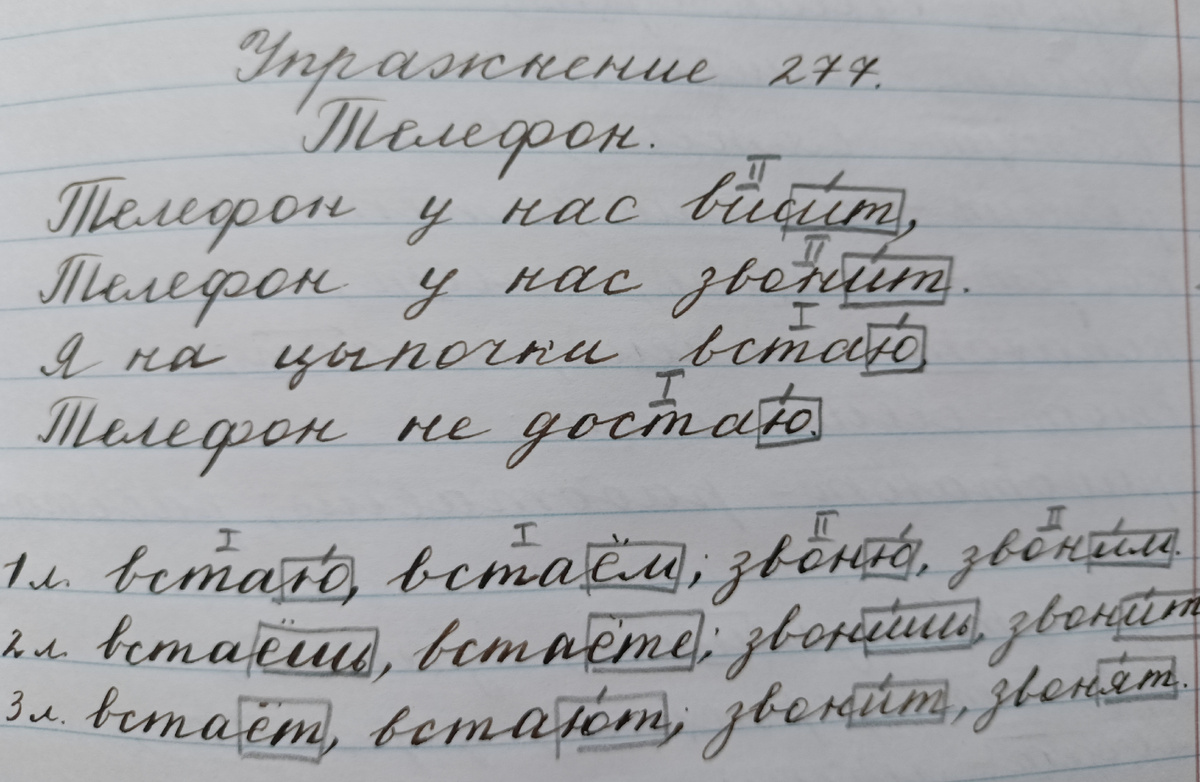 Упражнение 277.
Телефон.
Телефон у нас виси́т,
Телефон у нас звони́т.
Я на цыпочки встаю́,
Телефон не достаю́.
1 л. встаю́, встаём; звоню́, звони́м.
2 л. встаёшь, встаёте; звони́шь, звони́т
3 л. встаёт, встаю́т; звони́т, звоня́т.